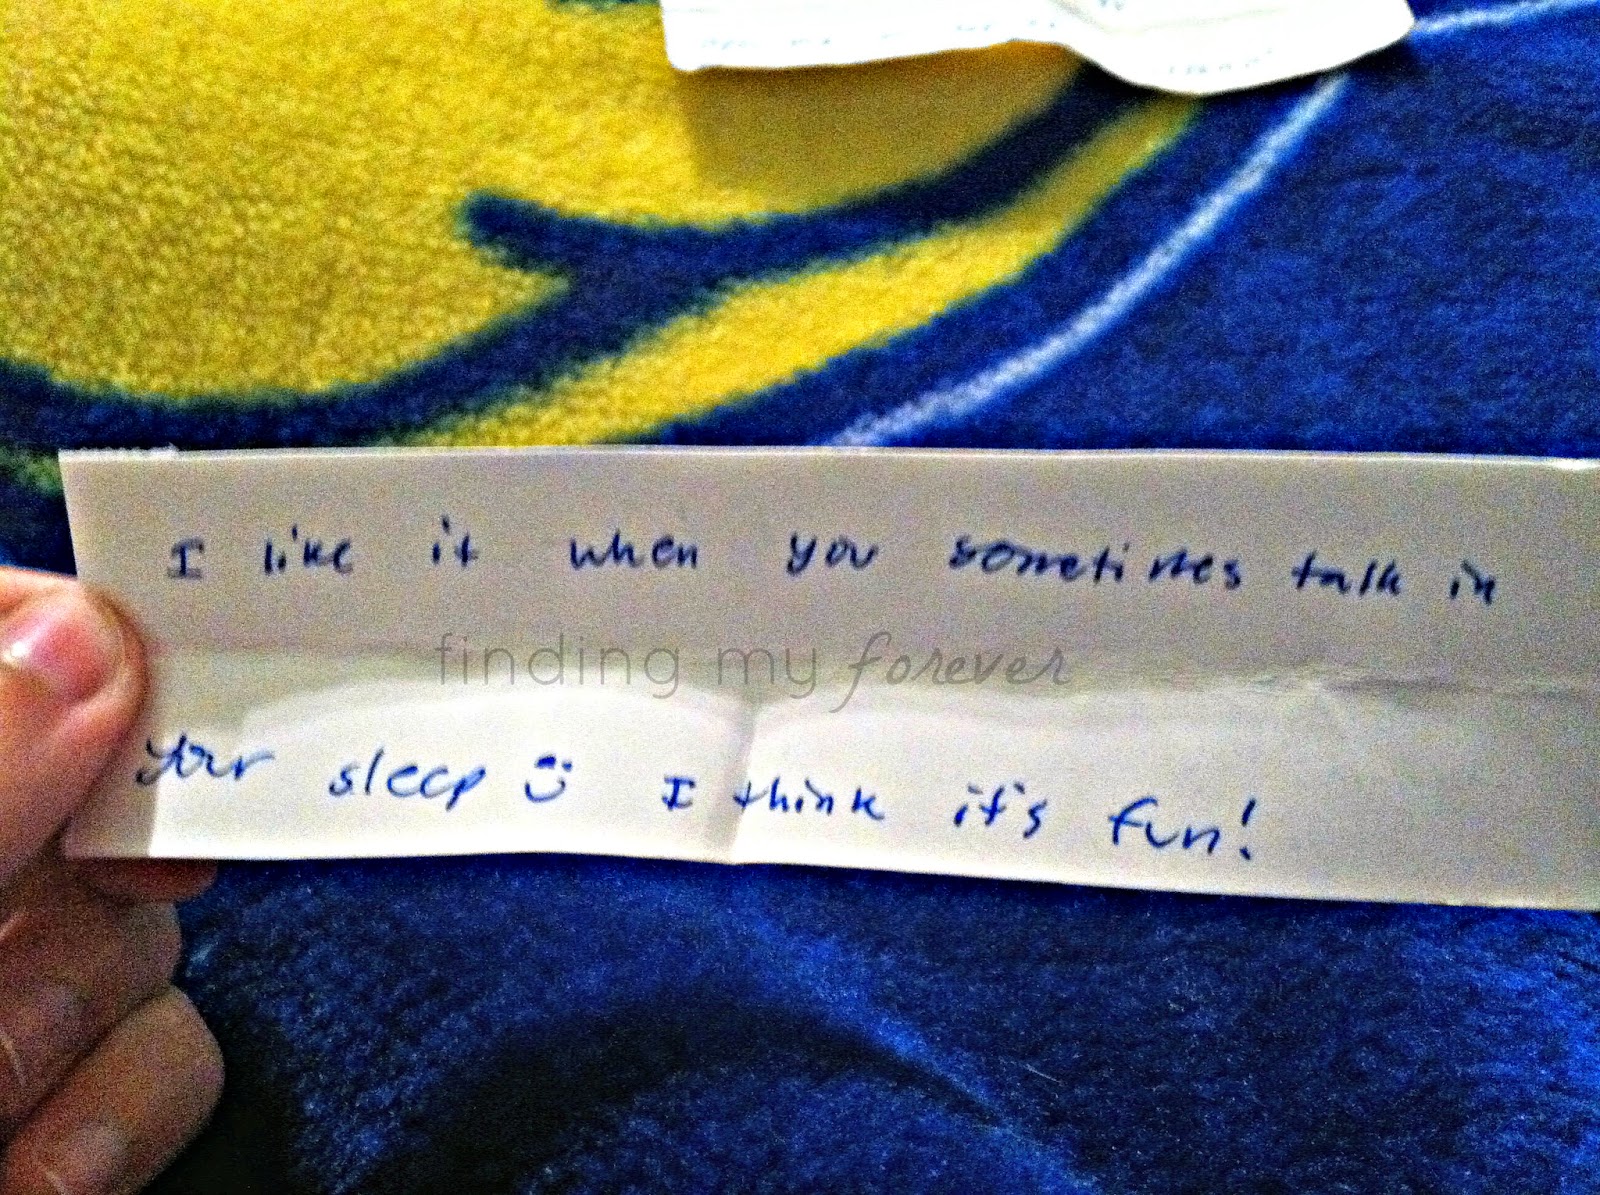 I like it when you sometimes talk in
finding my forever
your sleep I think it's fun!